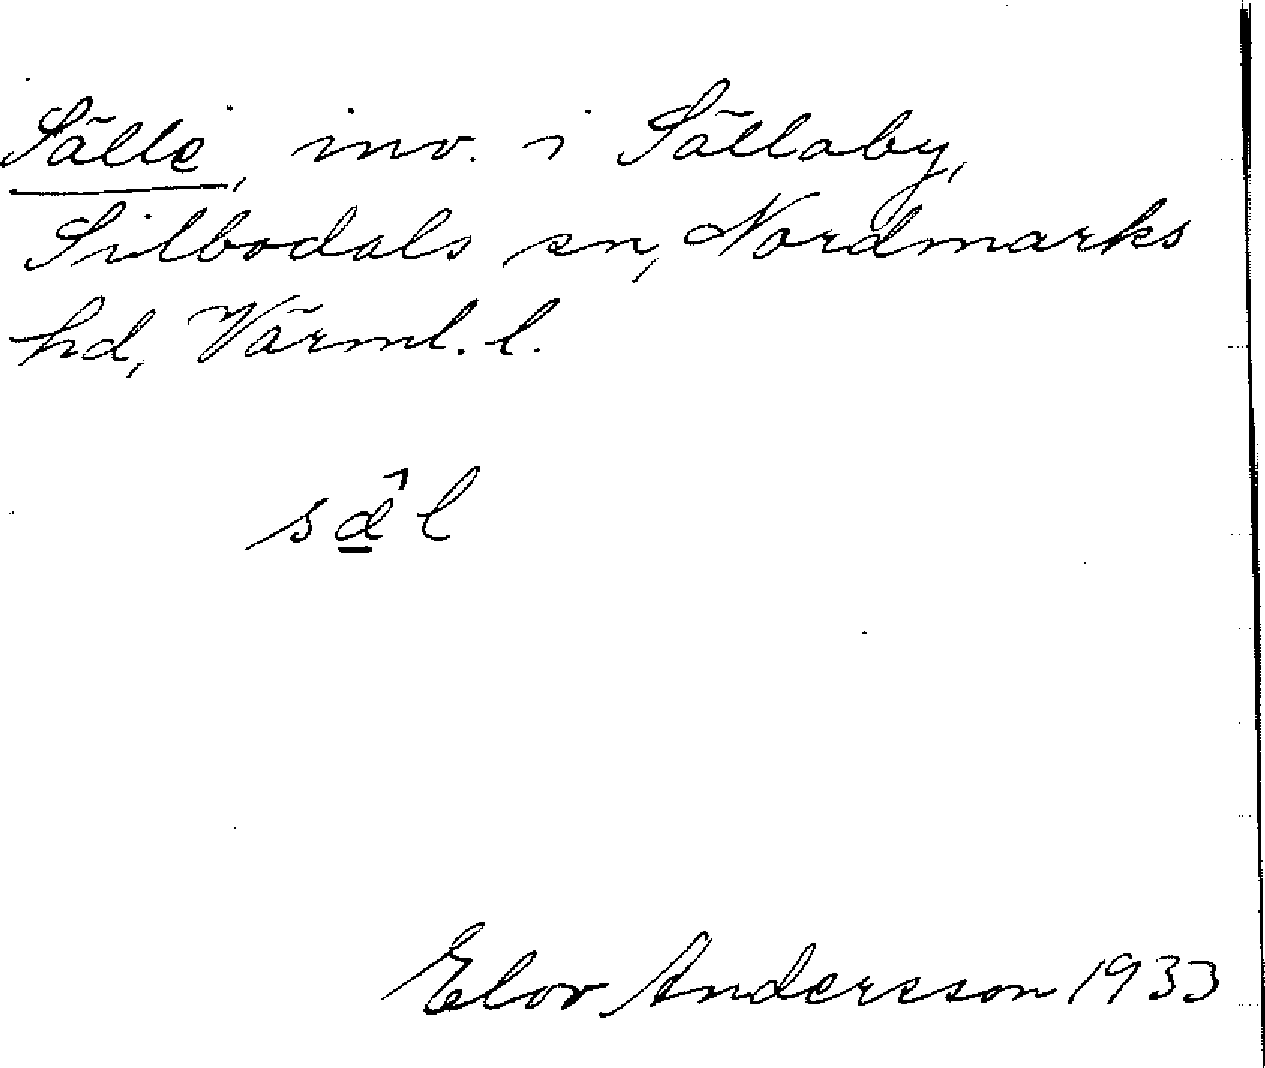 Sälle, inv. i Sällaby,
Silbodals sn, Nordmarks
hd, Värml. l.
sä̂l
Elov Andersson 1933